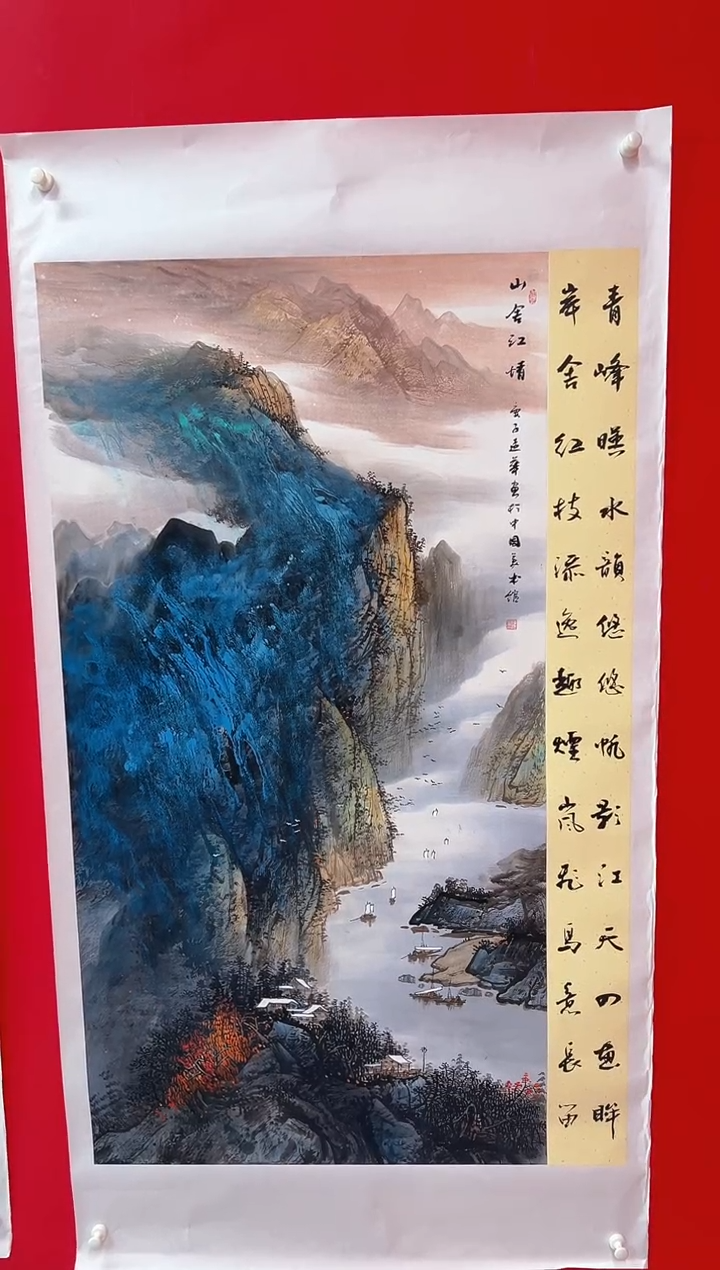 青峰暎水韻悠悠帆影江天畫眸
岸舍紅枝添逸趣煙嵐飛鳥意長留
山舍江情
畫於中國美术館